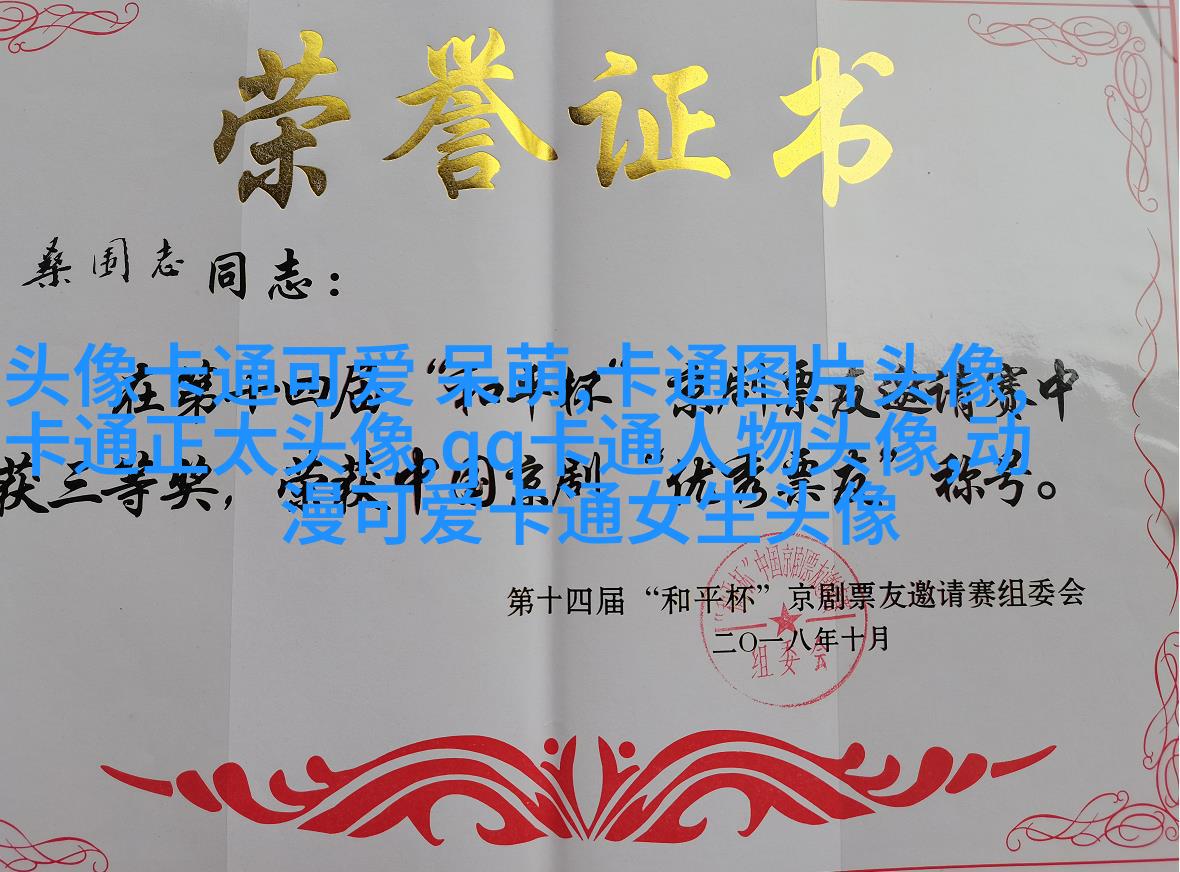 荣誉证书
桑国志同志：
头像卡通可爱 呆萌,卡通图片头像,
在第十四届“和平杯”京剧票友邀请赛中
卡通正太头像,qq卡通人物头像,动
获三等奖，荣获中国京剧“优秀票友”称号。
漫可爱卡通女生头像
第十四届“和平杯”京剧票友邀请赛组委会
二〇一八年十月
组委会